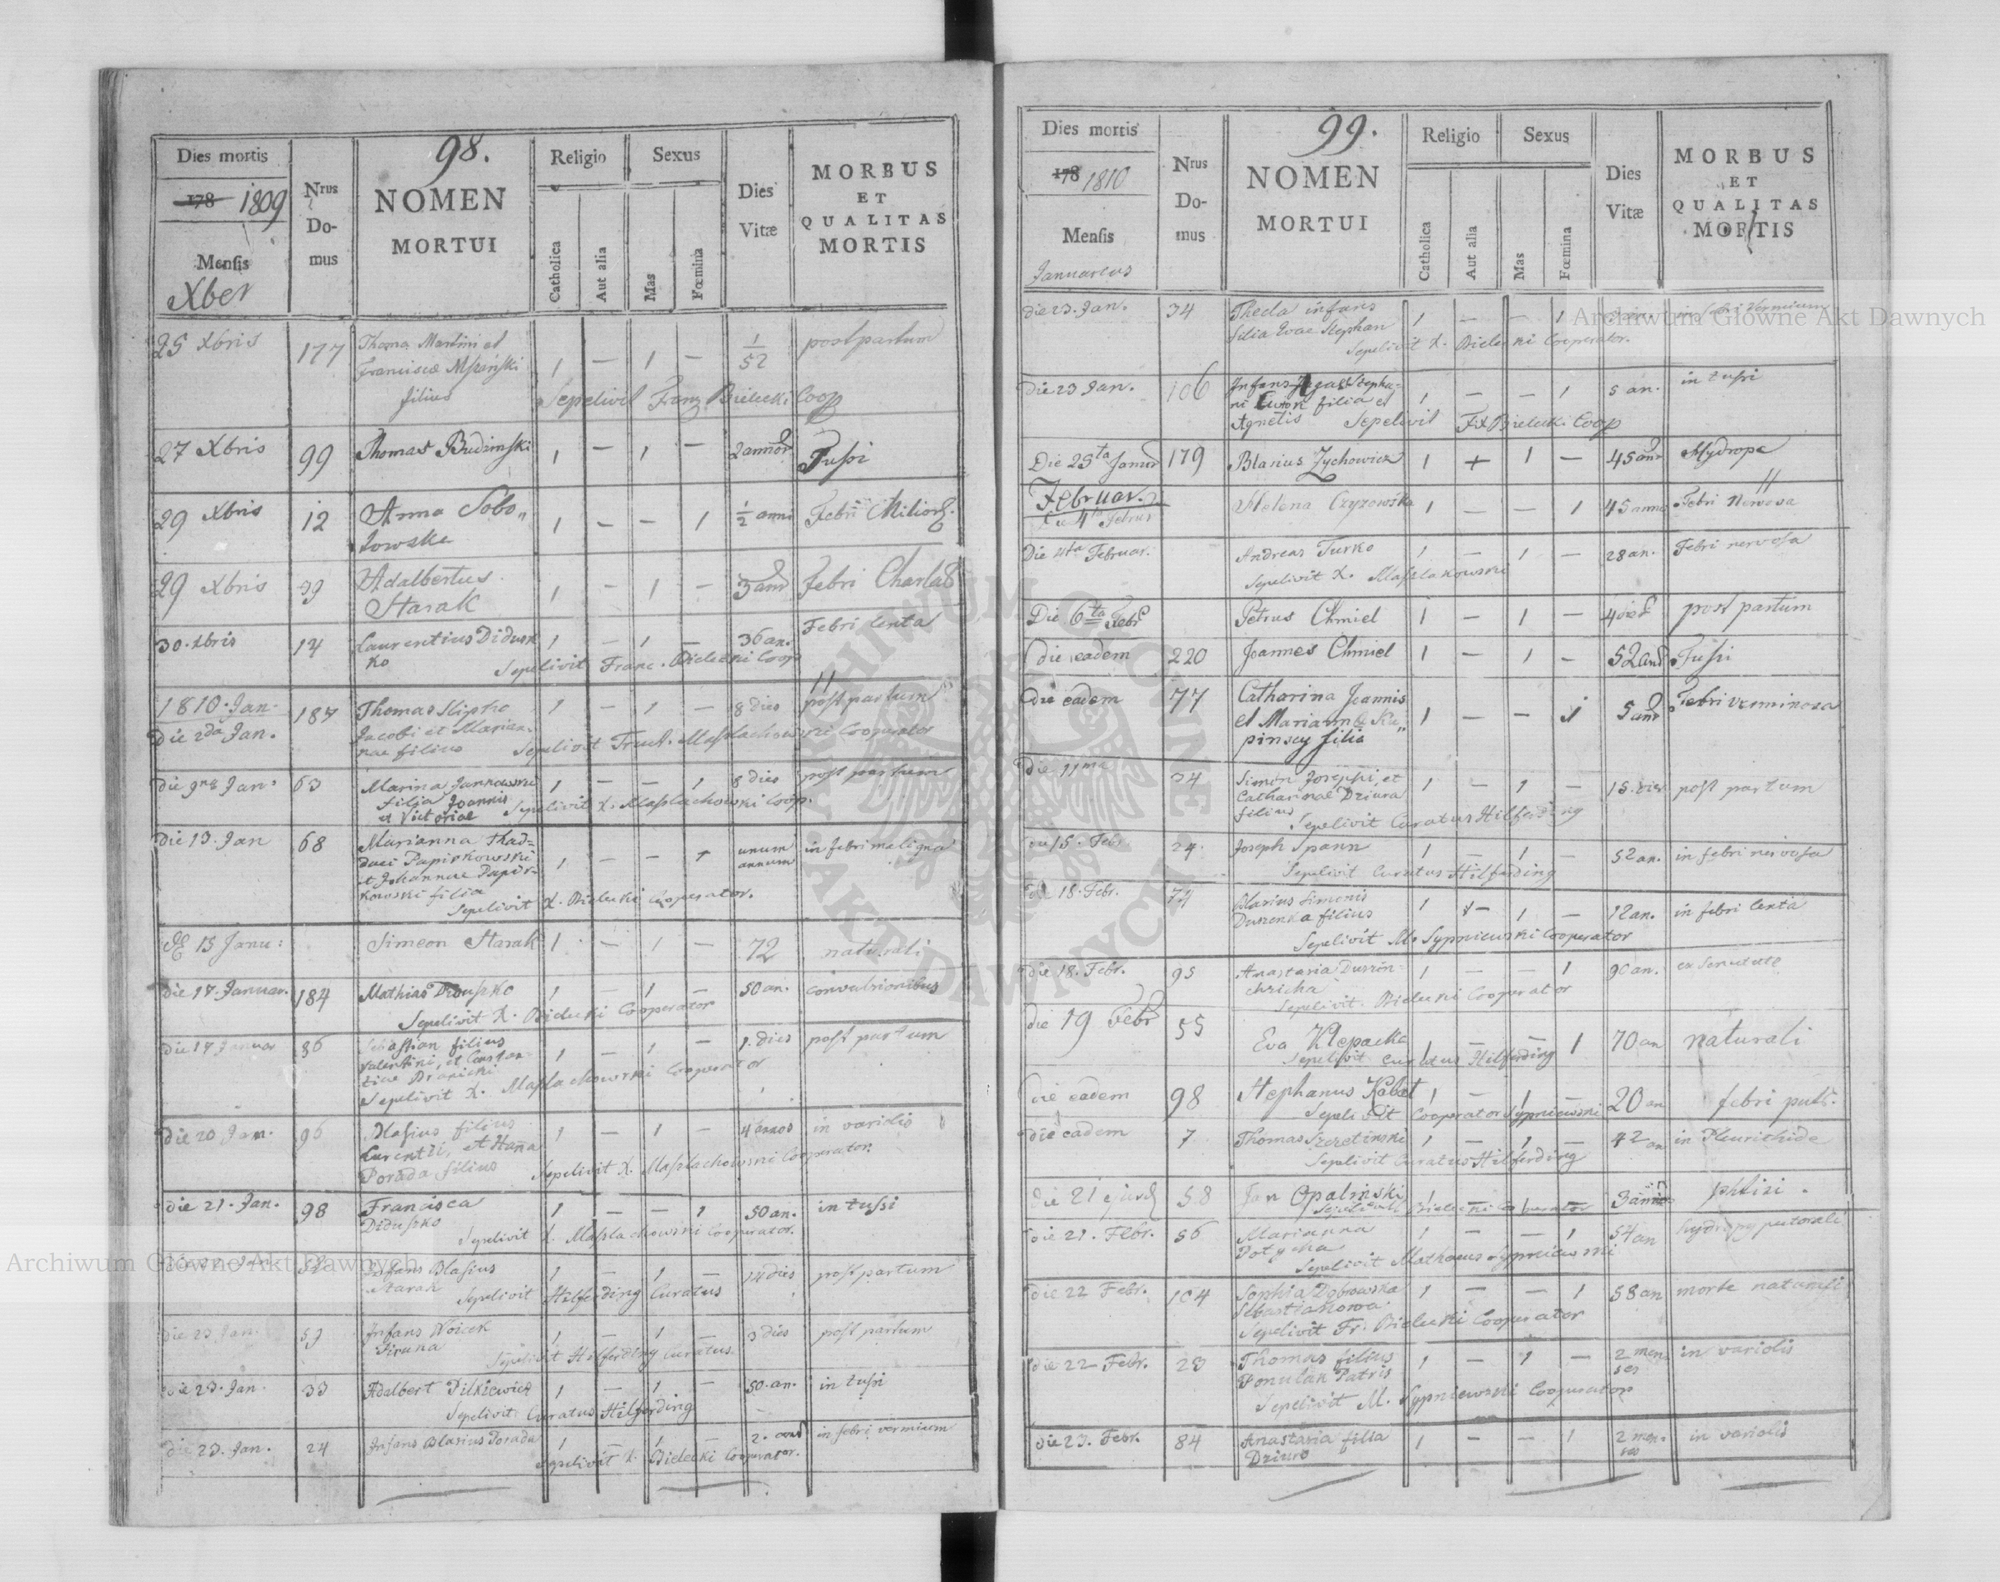 98.
Dies mortis
178 1809
Mensis
Xber
Nrus
Do-
mus
NOMEN
MORTUI
Religio
Catholica
Aut alia
Sexus
Mas
Fœmina
Dies
Vitæ
MORBUS
ET
QUALITAS
MORTIS
25 Xbris 177 Thoma Martini et 1 — 1 — 1/52 post partum
Franciscæ
filius Sepelivit Franz. Bielecki Coop
27 Xbris 99 Thomas Budzinski 1 — 1 — 2 annor Tussi
29 Xbris 12 Anna Sobo„ 1 — — 1 ½ anni Febri
lowska
29 Xbris 39 Adalbertus 1 — 1 — 3 ann Febri
Starak
30. Xbris 14 Laurentius Didusz 1 — 1 — 36 an. Febri lenta
ko Sepelivit Franc. Bielecki Coop
1810. Jan. 187 Thomas 1 — 1 — 8 dies post partum
Die 2da Jan. Jacobi et Marian-
nae filius Sepelivit Maszlachowski Cooperator
die 9na Jan. 63 Marina Jankowski 1 — — 1 8 dies post partum
filia Joannis Sepelivit X. Maszlachowski Coop.
et Victoriae
die 13. Jan 68 Marianna Thad- 1 — — 1 unum annum in febri maligna
daei Papirkowski
et Johannae Papir-
kowski filia
Sepelivit X. Bielecki Cooperator.
15 Janu: Simeon Starak 1 — 1 — 72 naturali
die 17 Januar. 184 Mathias Diduszko 1 — 1 — 50 an. convulsionibus
Sepelivit X. Bielecki Cooperator
die 17 Januar 86 Sebastian filius 1 — 1 — 1. dies post partum
Valentini, et Constan-
tiae
Sepelivit X. Maszlachowski Cooperator
die 20 Jan. 96 Blasius filius 1 — 1 — 4 annos in variolis
Laurentii, et Hanna
Porada filius Sepelivit X. Maszlachowski Cooperator.
die 21. Jan. 98 Francisca 1 — — 1 50 an. in tussi
Diduszko
Sepelivit X. Maszlachowski Cooperator.
Infans Blasius 1 — 1 — 14 dies post partum
Starak Sepelivit Hilferding Curatus
die 23 Jan. 53 Infans Woicek 1 — 1 — 3 dies post partum
Piruna Sepelivit Hilferding Curatus.
die 23. Jan. 33 Adalbert Pilkiewicz 1 — 1 — 50. an. in tussi
Sepelivit Curatus Hilferding
die 23. Jan. 24 Infans Blasius Porada 1 — 1 — 2. ann in febri vermium
Sepelivit X. Bielecki Cooperator.
99.
Dies mortis
178 1810
Mensis
Januarius
Nrus
Do-
mus
NOMEN
MORTUI
Religio
Catholica
Aut alia
Sexus
Mas
Fœmina
Dies
Vitæ
MORBUS
ET
QUALITAS
MORTIS
die 23. Jan. 34 Thecla infans 1 — — 1 in febri vermium
filia Evae Stephan
Sepelivit X. Bielecki Cooperator.
die 23 Jan. 106 Infans Stepha- 1 — — 1 5 an. in tussi
ni filia et
Agnetis Sepelivit FX Bielecki Coop
Die 25ta Januar 179 Blasius Zychowicz 1 + 1 — 45 ann Hydrope
Februar. Helena Czyzowska 1 — — 1 45 anno Febri Nervosa
Die 4ta Februar. Andreas Turko 1 — 1 — 28 an. Febri nervosa
Sepelivit X. Maszlakowski
Die 6ta Febr Petrus Chmiel 1 — 1 — 4 die post partum
die eadem 220 Joannes Chmiel 1 — 1 — 52 ann Tussi
die eadem 77 Catharina Joannis 1 — — 1 5 ann Febri verminosa
et Marianna Ka„
pinscy filia
die 11ma 34 Simon Josephi, et 1 — 1 — 15. dies post partum
Catharinae Dziura
filius Sepelivit Curatus Hilferding
15. Febr. 24. Joseph Spann 1 — 1 — 52 an. in febri nervosa
Sepelivit Curatus Hilferding
18. Febr. 74 Blasius Simonis 1 — 1 — 12 an. in febri lenta
filius
Sepelivit M. Sypniewski Cooperator
die 18. Febr. 95 Anastasia 1 — — 1 90 an. ex senectute
Sepelivit. Bielecki Cooperator
die 19 Febr 55 Eva Klepacka 1 — — 1 70 an naturali
Sepelivit Curatus Hilferding
die eadem 98 Stephanus Kabat 1 — 1 — 20 an febri putr.
Sepelivit Cooperator Sypniewski
die eadem 7 Thomas 1 — 1 — 42 an in Pleuritide
Sepelivit Curatus Hilferding
die 21 ejusd 58 Jan Opalinski 1 — 1 — 3 annor phtisi.
Sepelivit Bielecki Cooperator
die 21. Febr. 56 Marianna 1 — — 1 54 an
Potycha Sepelivit Mathaeus Sypniewski
die 22 Febr. 104 Sophia Dobrowska 1 — — 1 58 an morte naturali
Sebastianowa.
Sepelivit Fr. Bielecki Cooperator
die 22 Febr. 23 Thomas filius 1 — 1 — 2 men- in variolis
Ponulak Patris ses
Sepelivit M. Sypniewski Cooperator
die 23. Febr. 84 Anastasia filia 1 — — 1 2 men- in variolis
Dziuro ses
Archiwum Główne Akt Dawnych
Archiwum Główne Akt Dawnych
ARCHIWUM GŁÓWNE AKT DAWNYCH